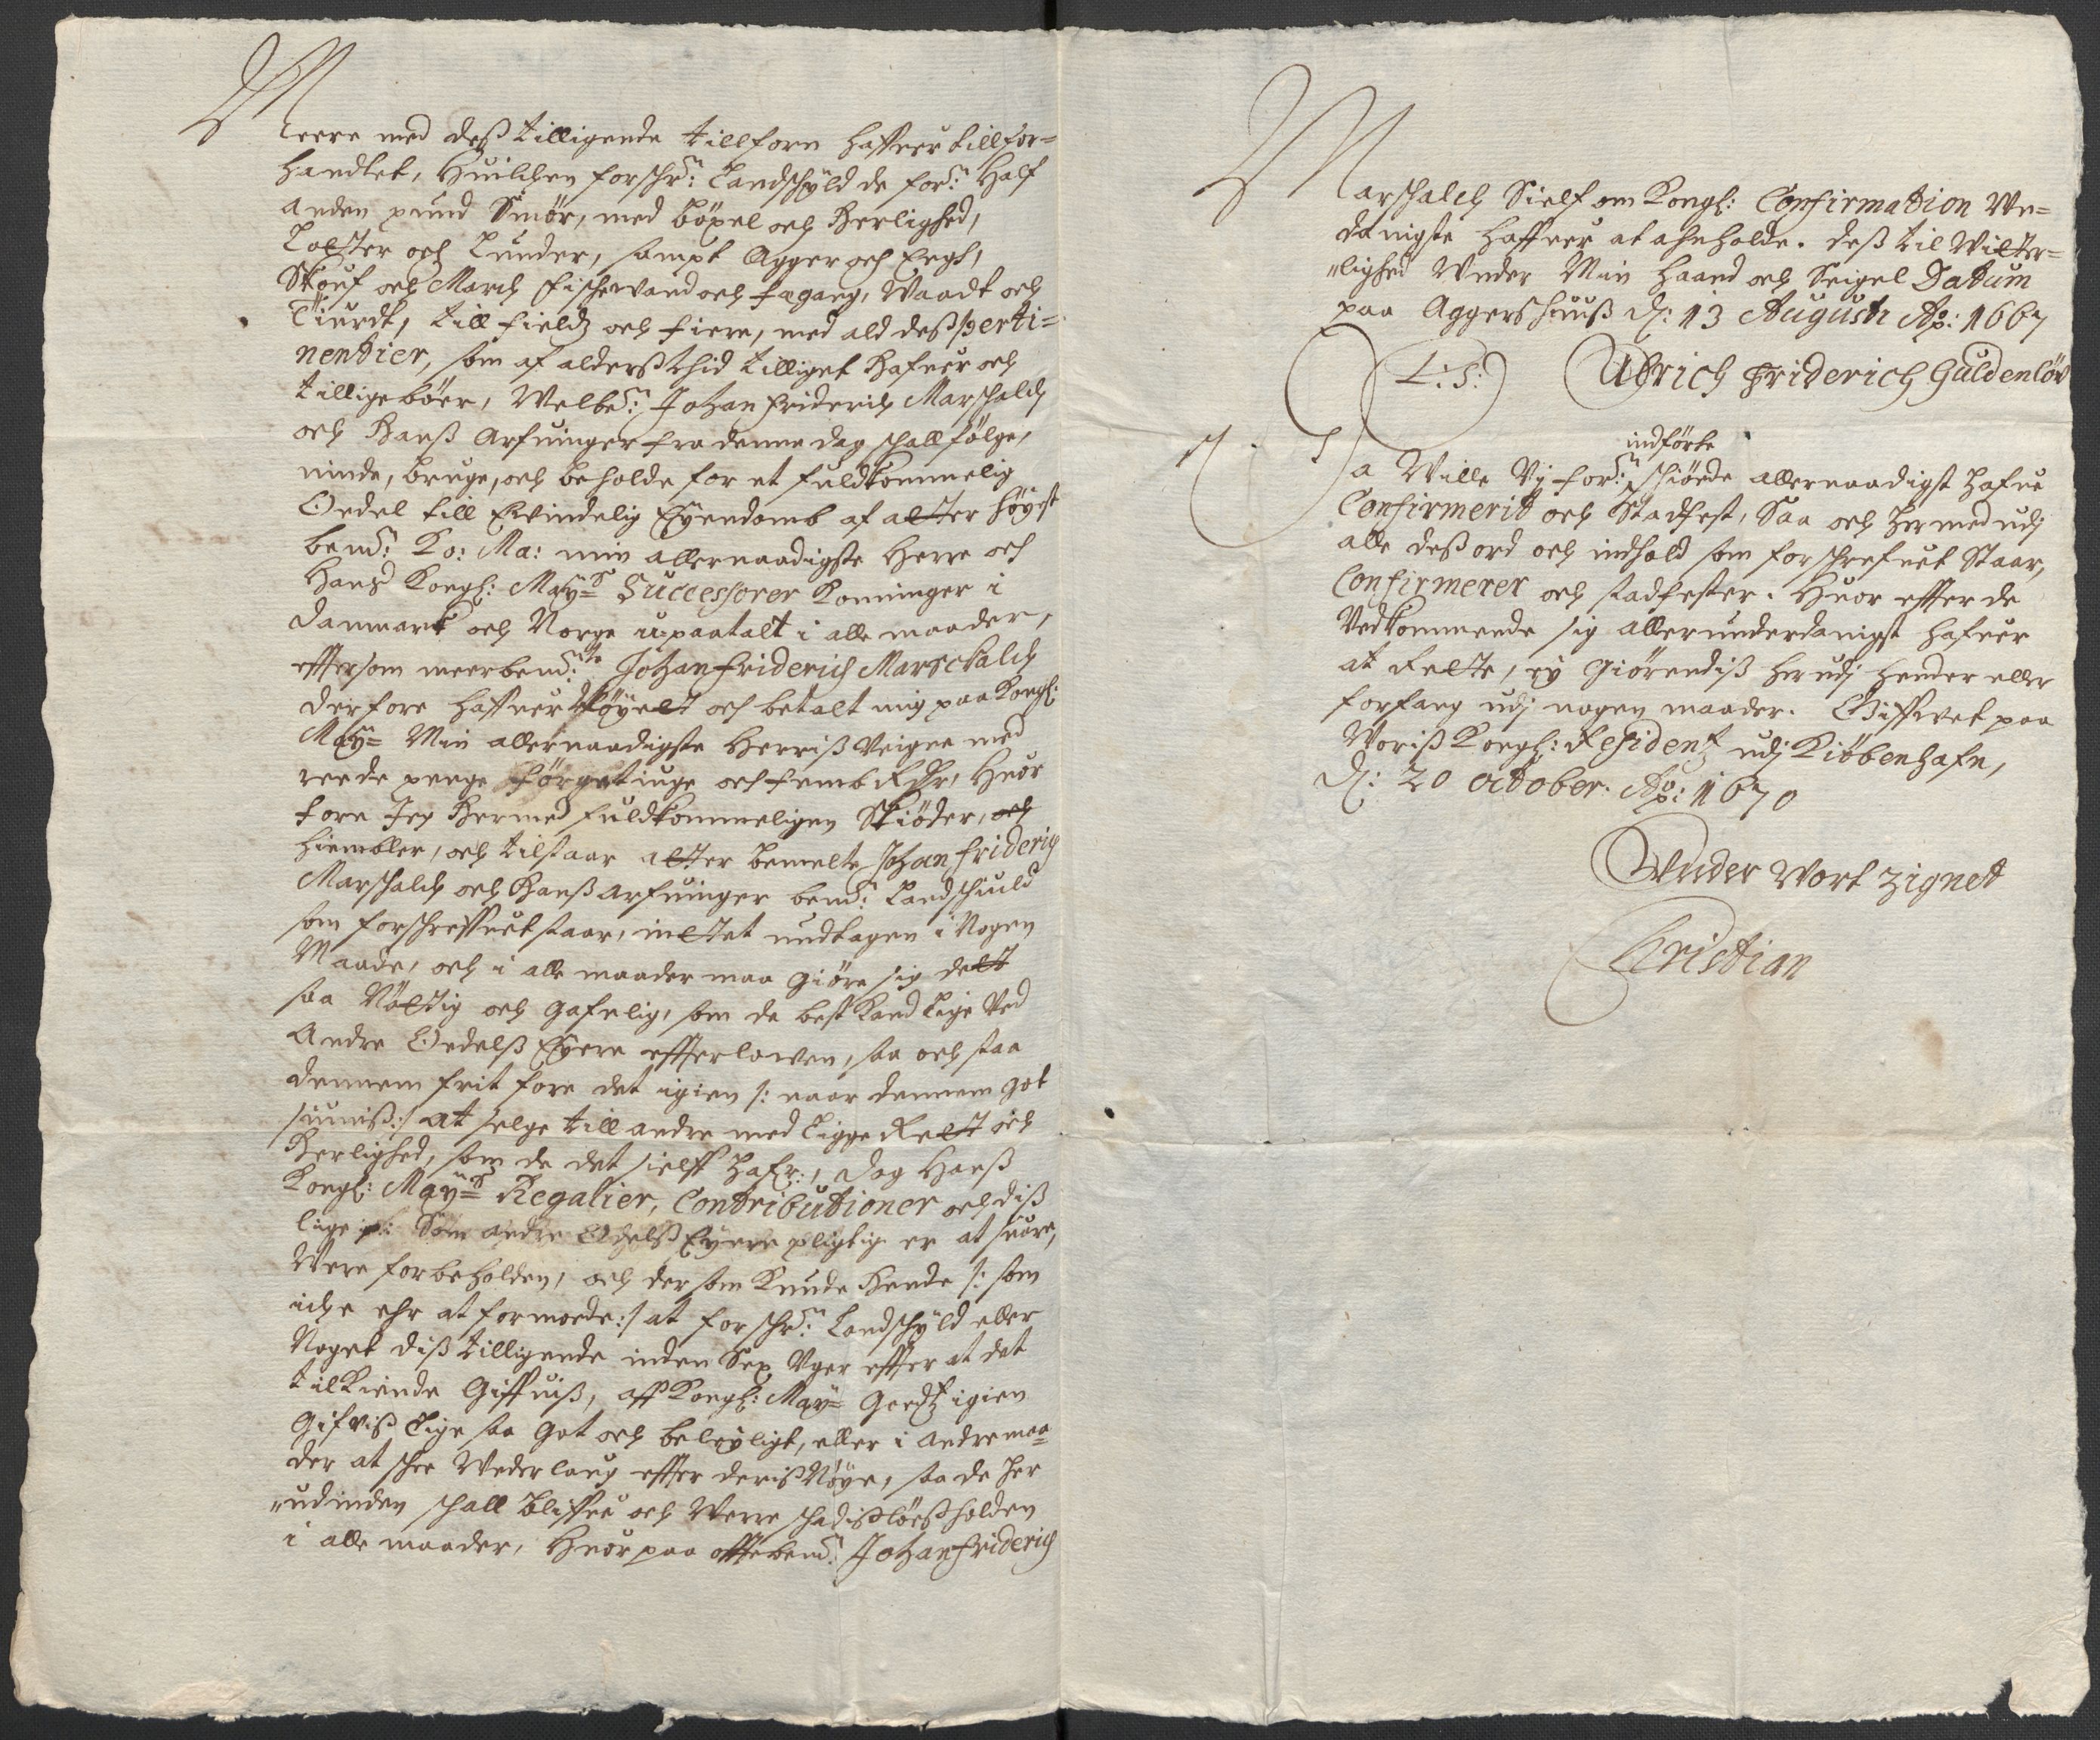 Meere med deß tilligende tillforn haffuer tillfor=
handlet, Huilchen forschr:ne Landschyld de for:ne Half
anden pund Smör, med böxel och Herlighed,
Lotter och Lunder, sampt Agger och Engh,
Skouf och March fischevand och fægang, Vaadt och
Tiurdt, till fieldz och fiere, med ald deß perti=
nentier, som af alderß thid tilliget Hafuer och
tilligebör, Welbe:ne Johan Friderich Marschalch
och Hanß Arfuinger fra denne dag schall fölge,
niude, bruge, och beholde for et fuldkommelig
Oedel till Ewindelig Eyendomb af alter höyst
bem:te Ko: Ma: min allernaadigste Herre och
Hans Kongl: May:s Successorer Konninger i
Danmark och Norge u-paatalt i alle maader,
effersom meerbem:te Johan Friderich Marschalch
derfore haffuer Nöyelt och betalt mig paa Kongl:
May= Min allernaadigste Herriß Veigne med
reede penge förgetiuge och femb Rdr, Huor
fore Jeg Hermed fuldkommeligen Skiöder, och
Hiembler, och tilstaar alter bemelte Johan Friderich
Marschalch och Hanß Arfuinger bem:te Landschiuld
som forschreffuet staar, inttet undtagen i Nogen
Maade, och i alle maader maa giöre sig dett
saa Nöttig och gafnlig, som de best Kand Lige Ved
Andre Oedelß Eyere effter lowen, saa och staa
dennem frit fore det igien /: naar dennem got
siuniß:/ at selge till andre med Ligge Rett och
Herlighed, som de det sielff hafr:, dog Hanß
Kongl: May:s Regalier, Contributioner och diß
lige p: Som andre Odelß Eyere pligtig er at suare,
Were forbeholden, och der som Kunde Hende /: som
iche ehr at formoede:/ at forschr:ne Landschyld eller
Noget diß tilligende inden Sex Uger effter at det
tilkiende Giffuiß, aff Kongl: May= Goedtz igien
Gifviß Lige saa Got och beleyligt, eller i andre maa=
der at schee Wederlaug effter deriß Nöye, saa de her
"udinden schall bliffue och Were schadißlöeß holden
i alle maader, Huorpaa offtebem:te Johan Friderich
Marschalch Sielf om Kongl: Confirmation Un=
danigste haffuer at ahnholde. Deß til Witter=
"lighed Under Min Haand och Seigel Datum
paa Aggershuuß d: 13 Augusti Ao: 1667
L: S: Ulrich Friderich Guldenlöw
indförte
Da Wille Vj for:ne schiöede allernaadigst hafue
Confirmerit och Stadfest, Saa och hermed udj
alle deß ord och indhold som forschrefuet Staar,
Confirmerer och stadfester. Huor effter de
Vedkommende sig allerunderdanigst hafuer
at Rette, ey Giörendiß herudj hender eller
forfang udj nogen maader. Giffvet paa
Voriß Kongl: Residentz udj Kiöbenhafn,
d: 20 october. Ao: 1670
Under Vort Zignet
Christian